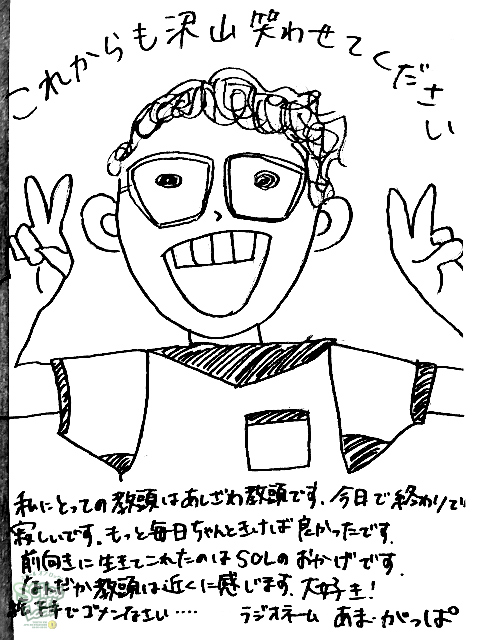 これからも沢山笑わせてください
私にとっての教頭はあしざわ教頭です。今日で終わりで
寂しいです。もっと毎日ちゃんときけば良かったです。
前向きに生きてこれたのはSOLのおかげです。
なんだか教頭は近くに感じます。大好き!
絵下手でゴメンなさい‥‥ ラジオネーム あま・がっぱ